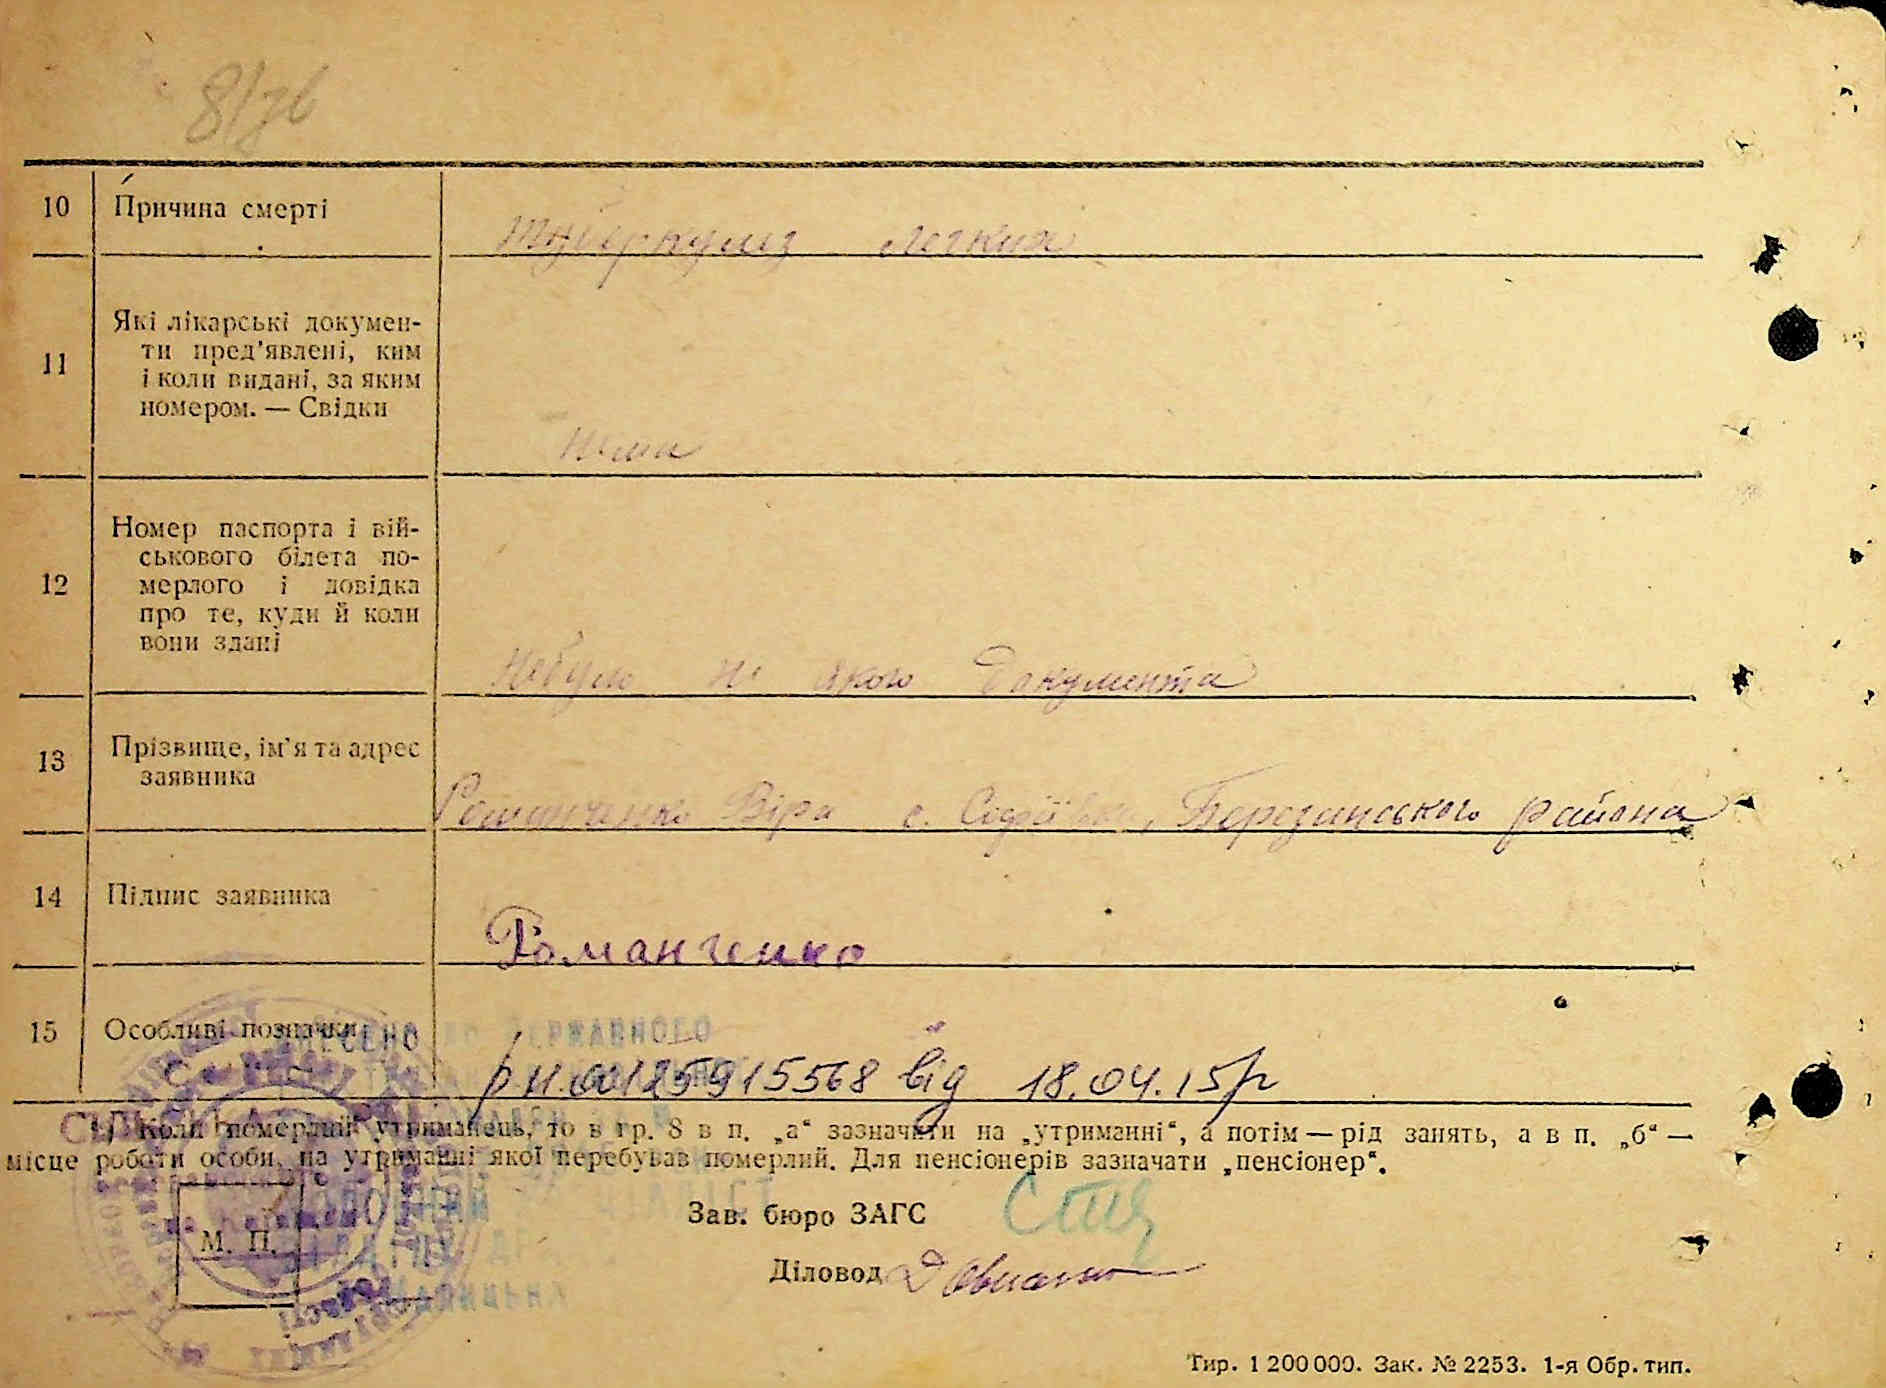 10 Причина смерті туберкульз легких
11 Які лікарські докумен-
ти пред'явлені, ким
і коли видані, за яким
номером. — Свідки
нима
12 Номер паспорта і вій-
ськового білета по-
мерлого і довідка
про те, куди й коли
вони здані
Небуло ні якого документа
13 Прізвище, ім'я та адрес
заявника
Романченко Віра с. Софіївка, Березанського района
14 Підпис заявника Романченко
15 Особливі позначки
ДЕРЖАВНОГО
рн.00125915568 від 18.04.15р
¹) Коли померлий утриманець, то в гр. 8 в п. „а“ зазначити на „утриманні“, а потім — рід занять, а в п. „б“ —
місце роботи особи, на утриманні якої перебував померлий. Для пенсіонерів зазначати „пенсіонер“.
Зав. бюро ЗАГС
М. П.
Діловод
Тир. 1 200 000. Зак. № 2253. 1-я Обр. тип.